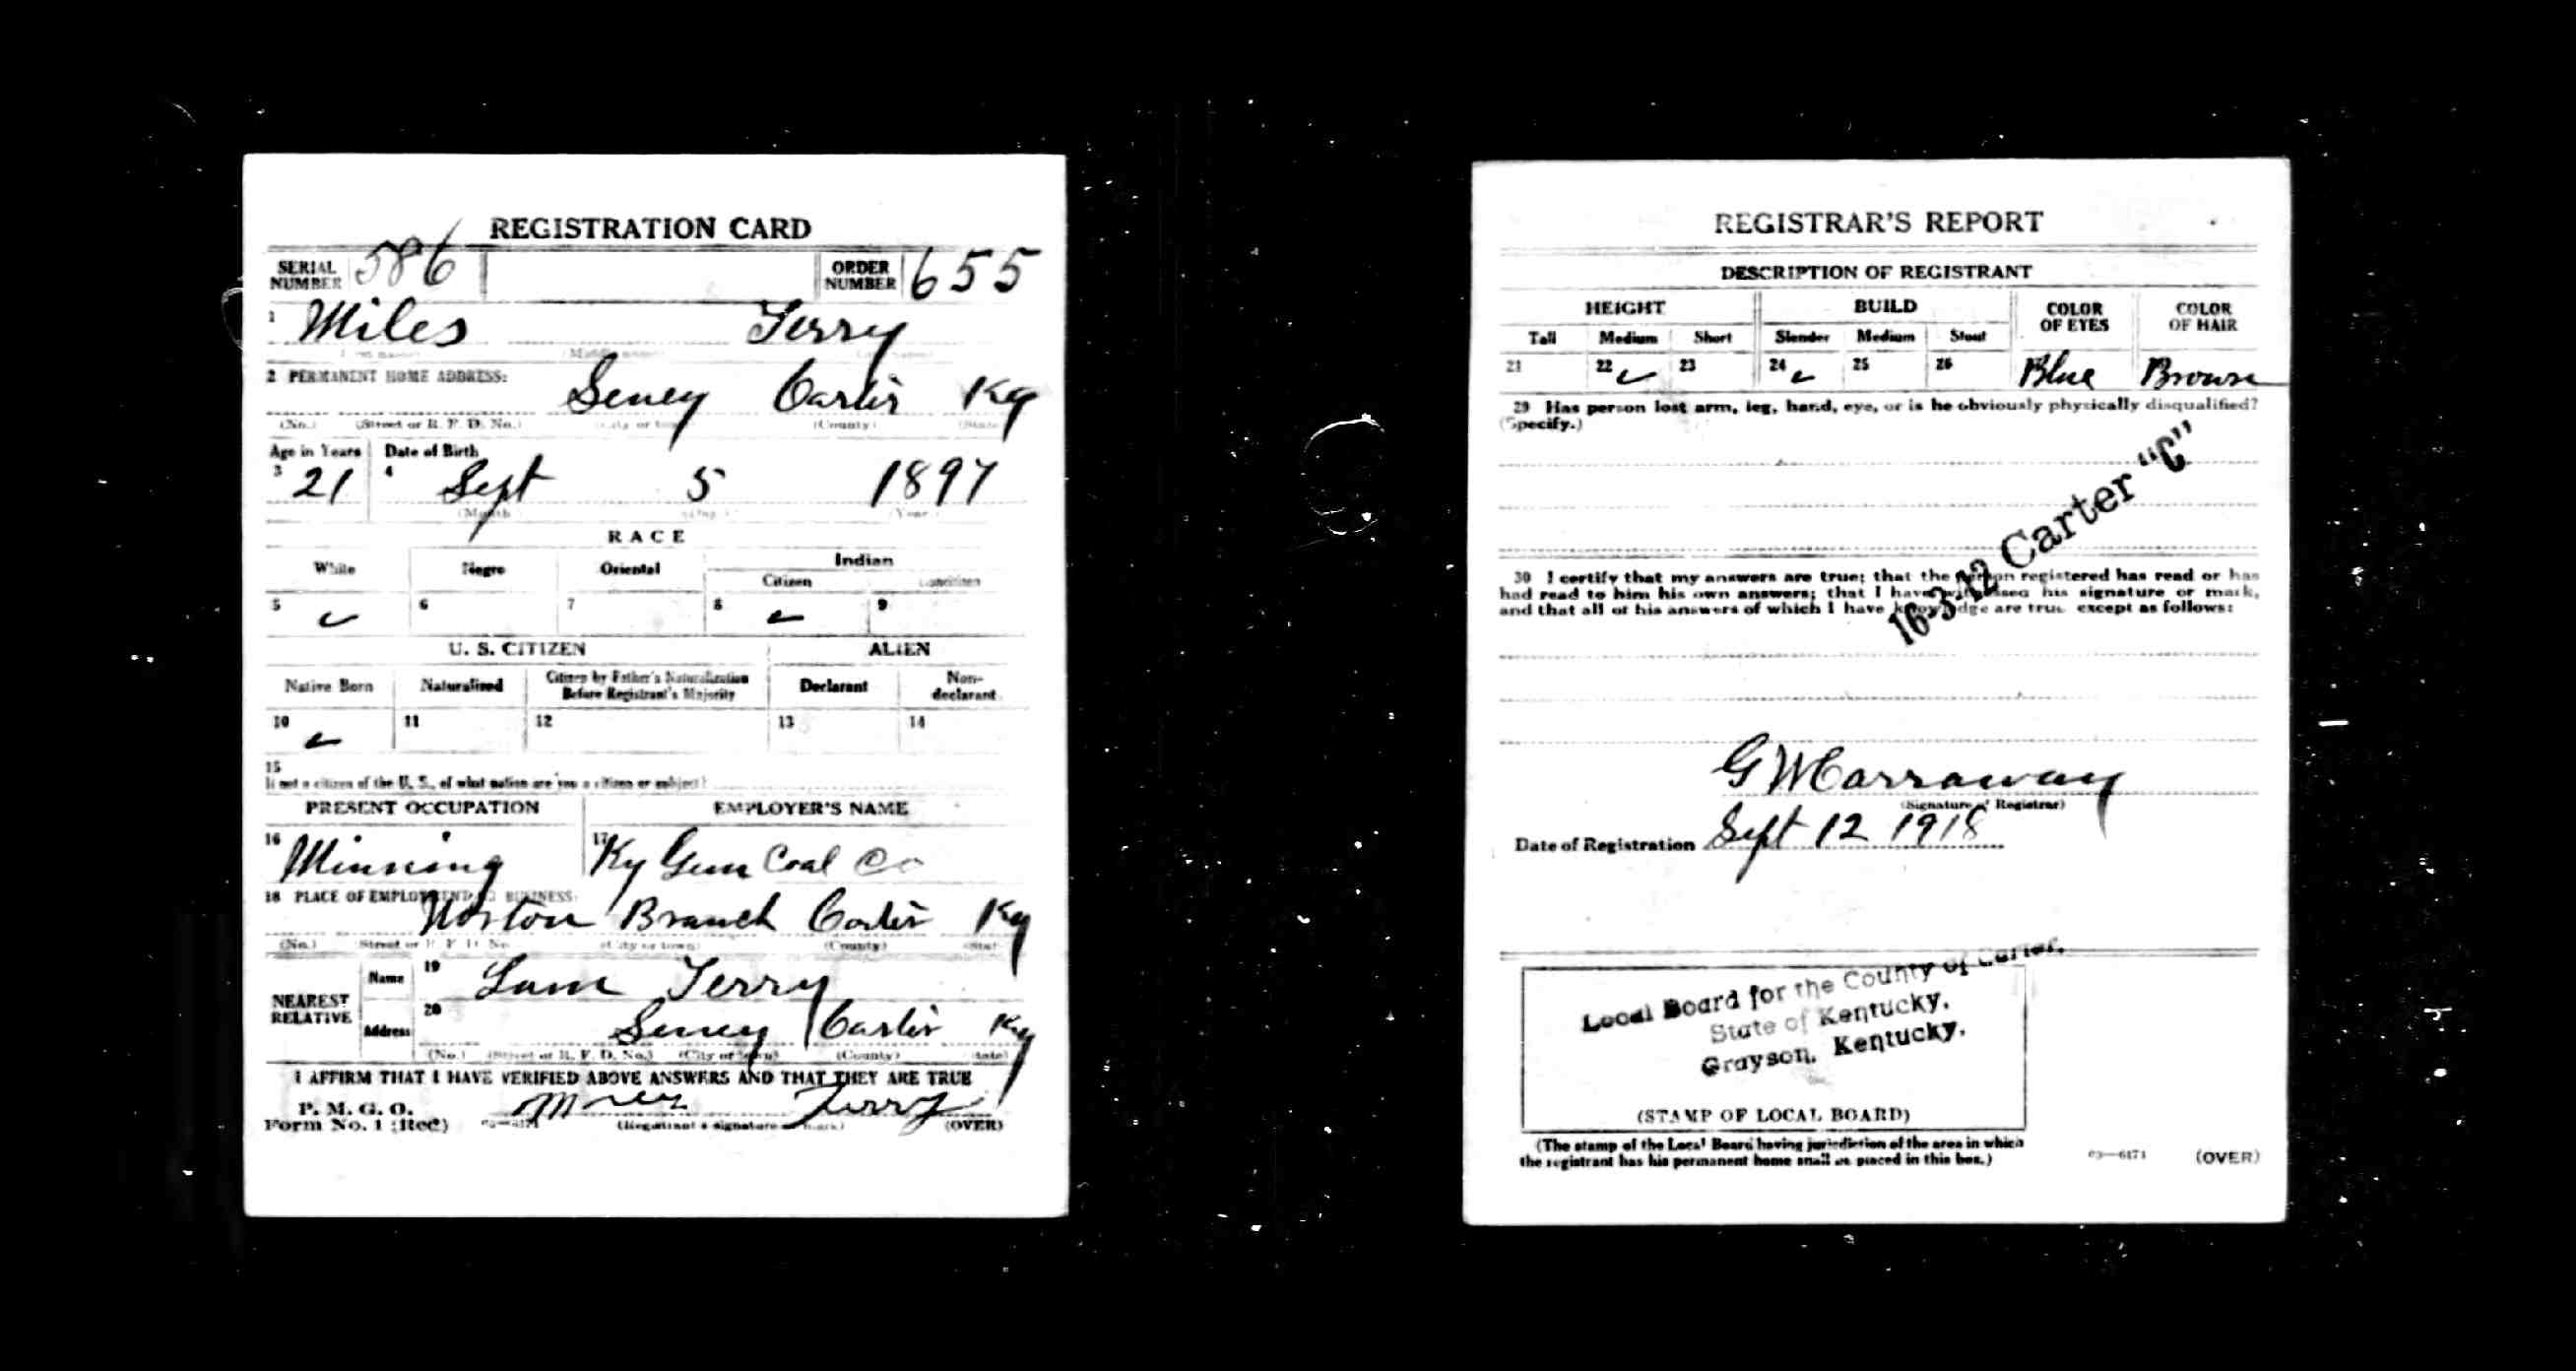 REGISTRATION CARD
SERIAL NUMBER 586 ORDER NUMBER 655
1 Miles Terry
(Middle name)
2 PERMANENT HOME ADDRESS:
Seney Carter Ky
(No.) (Street or R. F. D. No.) (City or town) (County) (State)
Age in Years Date of Birth
3 21 4 Sept 5 1897
(Month) (Day) (Year)
RACE
White Negro Oriental Indian
Citizen Noncitizen
5 6 7 8 9
U. S. CITIZEN ALIEN
Native Born Naturalized Citizen by Father's Naturalization Before Registrant's Majority Declarant Non-declarant
10 11 12 13 14
15
If not a citizen of the U. S., of what nation are you a citizen or subject?
PRESENT OCCUPATION EMPLOYER'S NAME
16 Minning 17 Ky Gem Coal Co
18 PLACE OF EMPLOYMENT OR BUSINESS:
Norton Branch Carter Ky
(No.) (Street or R. F. D. No.) (City or town) (County) (State)
NEAREST RELATIVE
Name 19 Sam Terry
Address 20 Seney Carter Ky
(No.) (Street or R. F. D. No.) (City or town) (County) (State)
I AFFIRM THAT I HAVE VERIFIED ABOVE ANSWERS AND THAT THEY ARE TRUE
P. M. G. O.
Form No. 1 (Red) Terry
(Registrant's signature or mark) (OVER)
REGISTRAR'S REPORT
DESCRIPTION OF REGISTRANT
HEIGHT BUILD COLOR OF EYES COLOR OF HAIR
Tall Medium Short Slender Medium Stout
21 22 23 24 25 26 Blue Brown
29 Has person lost arm, leg, hand, eye, or is he obviously physically disqualified?
(Specify.)
16-3-12 Carter "C"
30 I certify that my answers are true; that the person registered has read or has
had read to him his own answers; that I have witnessed his signature or mark,
and that all of his answers of which I have knowledge are true except as follows:
G W Carraway
(Signature of Registrar)
Date of Registration Sept 12 1918
Local Board for the County of Carter,
State of Kentucky,
Grayson, Kentucky.
(STAMP OF LOCAL BOARD)
(The stamp of the Local Board having jurisdiction of the area in which
the registrant has his permanent home shall be placed in this box.)
03—6171 (OVER)